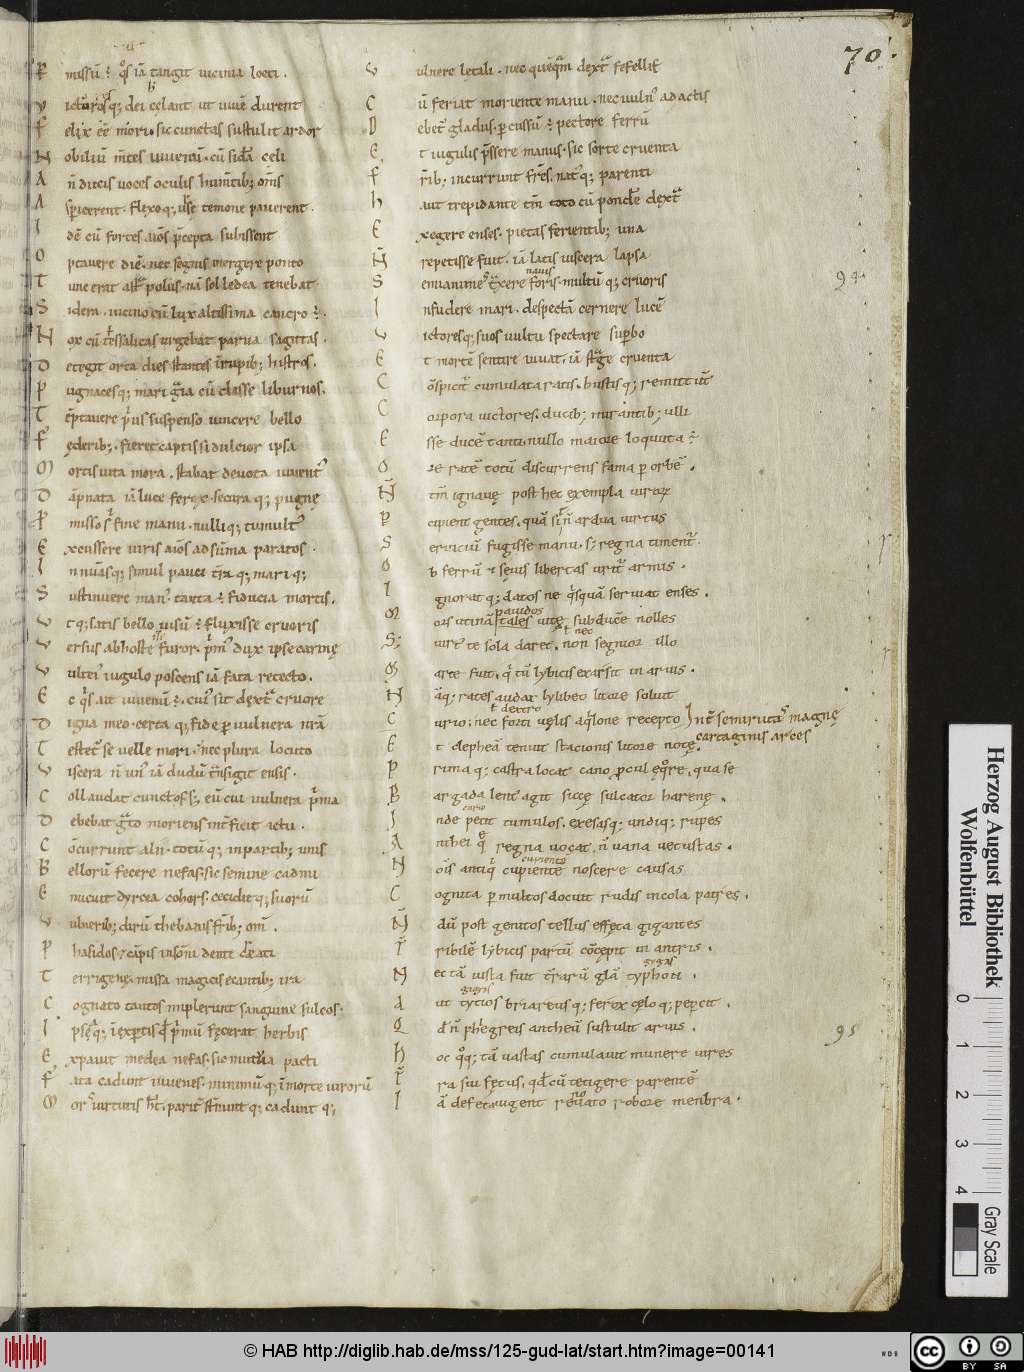 70
P missū ē q̊s iā tangit uicinia loeti.
V icturosq; dei celant ut uiuē durent
F elix ēē mori. sic cunctas sustulit ardor
N obiliū m̄tes iuuenū. cū sidā celi
A n̄ ducis uoces oculis humētib; om̄s
A spicerent. flexoq; ursę temone pauerent.
I dē cū fortes aīos p̄cepta subissent
O ptauere diē. nec segnis mergere ponto
T unc erat astra polus. nā sol ledea tenebat
S idera. uicino cū lux altissima cancro ē.
N ox tū tessalicas urgebat parua sagittas.
D etegit orta dies stantes in rupib; histros.
P ugnacesq; mari gīa cū classe liburnos.
T ēptauere p̄us suspenso uincere bello
F ęderib;. fieret captis si dulcior ipsa
M ortis uita mora. stabat deuota iuuent'
D āpnata iā luce ferox. secura q; pugnę
P misso s fine manu. nulliq; tumult'
E xcussere uiris aīos ad sūma paratos.
I n nūasq; simul pauci t̄ra q; mari q;
S ustinuere man'. tanta ē fiducia mortis.
V tq; satis bello uisū ē fluxisse cruoris
V ersus ab hoste furor. p̄m' dux ipse carinę
V ulteī iugulo poscens iā fata retecto.
E c q̄s ait iuuenū ē. cui' sit dextra cruore
D igna meo. certa q; fide p uulnera nr̄a
T estet' se uelle mori. nec plura locuto
V iscera n̄ un' iā dudū t̄nsigit ensis.
C ollaudat cunctos s;. eū cui uulnera p̄ma
D ebebat. g̊to moriens int̄ficit ictu.
C ōcurrunt alii. totū q; in partib; unis
B ellorū fecere nefas. sic semine cadmi
E micuit dyrcea cohors. cecidit q; suorū
V ulnerib;. dirū thebanis fr̄ib; om̄.
P hasidos & cāpis insōni dente creati
T errigenę. missa magicis e cantib; ira
C ognato tantos implerunt sanguine sulcos.
I psęq; inexptis qd̄ p̄mū fęcerat herbis
E xpauit medea nefas. sic mutua pacti
F ata cadunt iuuenes. minimū q; ī morte uirorū
M ors uirtutis h̄t. parit' st̄nunt q; cadunt q;
V ulnere lętali. nec quēq̄m dext̄ fefellit
C ū feriat moriente manu. nec uuln' adactis
D ebet' gladiis. pcussū ē pectore ferrū
E t iugulis p̄ssere manus. sic sorte cruenta
F r̄ib; incurrunt fr̄es. nat' q; parenti
H aut trepidante tm̄ toto cū pondere dext̄
E xegere enses. pietas ferientib; una
N̄ repetisse fuit. iā latis uiscera lapsa
nauis
S emianimes t̄xere foris. multū q; cruoris
94
I nfudere mari. despectā cernere lucē
V ictoresq; suos uultu spectare supbo
E t mortē sentire iuuat. iā strage cruenta
C ōspicit' cumulata ratis. bustis q; remittūt
C orpora uictores. ducib; mirantib; ulli
E sse ducē tanti. nullo maiore loquuta ē
O re ratē totū discurrens fama p orbē.
N̄ tm̄ ignauę post hec exempla uiroꝝ
P cipient gentes. quā sit n̄ ardua uirtus
S eruiciū fugisse manu. s; regna timent'
O b ferrū & sęuis libertas urit' armis.
I gnorat q; datos ne q̄squā seruiat enses.
pauidos
M ors utinā tales uitę subducē nolles
ł nec
S; uirt' te sola daret. non segnior illo
M arte fuit. q̄ tū lybicis exarsit in aruis.
N āq; rates audax lybibeo litore soluit
ł dextro
C urio; nec forti uelis aq̄lone recepto) Int̄ semirutas magnę
E t clepheā tenuit stacionis litore notę. cartaginis arces
P rima q; castra locat cano pcul ęq̊re. qua se
B argada lent' agit siccę sulcator harenę.
I nde petit tumulos. exesasq; undiq; rupes
A nthei q̄ę regna uocat. n̄ uana uetustas.
cupiente
N ōis antiq̄ cupiente noscere causas
C ognita p multos docuit rudis incola patres.
N̄ dū post genitos tellus effęta gigantes
T̄ ribilē lybicis partū cōcepit in antris.
gygas
N ec tā iusta fuit t̄rarū gl̄a typhon.
gigās
A ut tytios briareusq; ferox. cęlo q; pepcit.
Q d̄ n̄ phlegreis antheū sustulit aruis.
95
H oc q̊q; tā uastas cumulauit munere uires
T̄ ra sui fętus. qd̄ cū tetigere parentē
I ā defecta uigent renouato robore menbra.
Herzog August Bibliothek
Wolfenbüttel
0 1 2 3 4
Gray Scale
© HAB http://diglib.hab.de/mss/125-gud-lat/start.htm?image=00141
WDB
cc BY SA